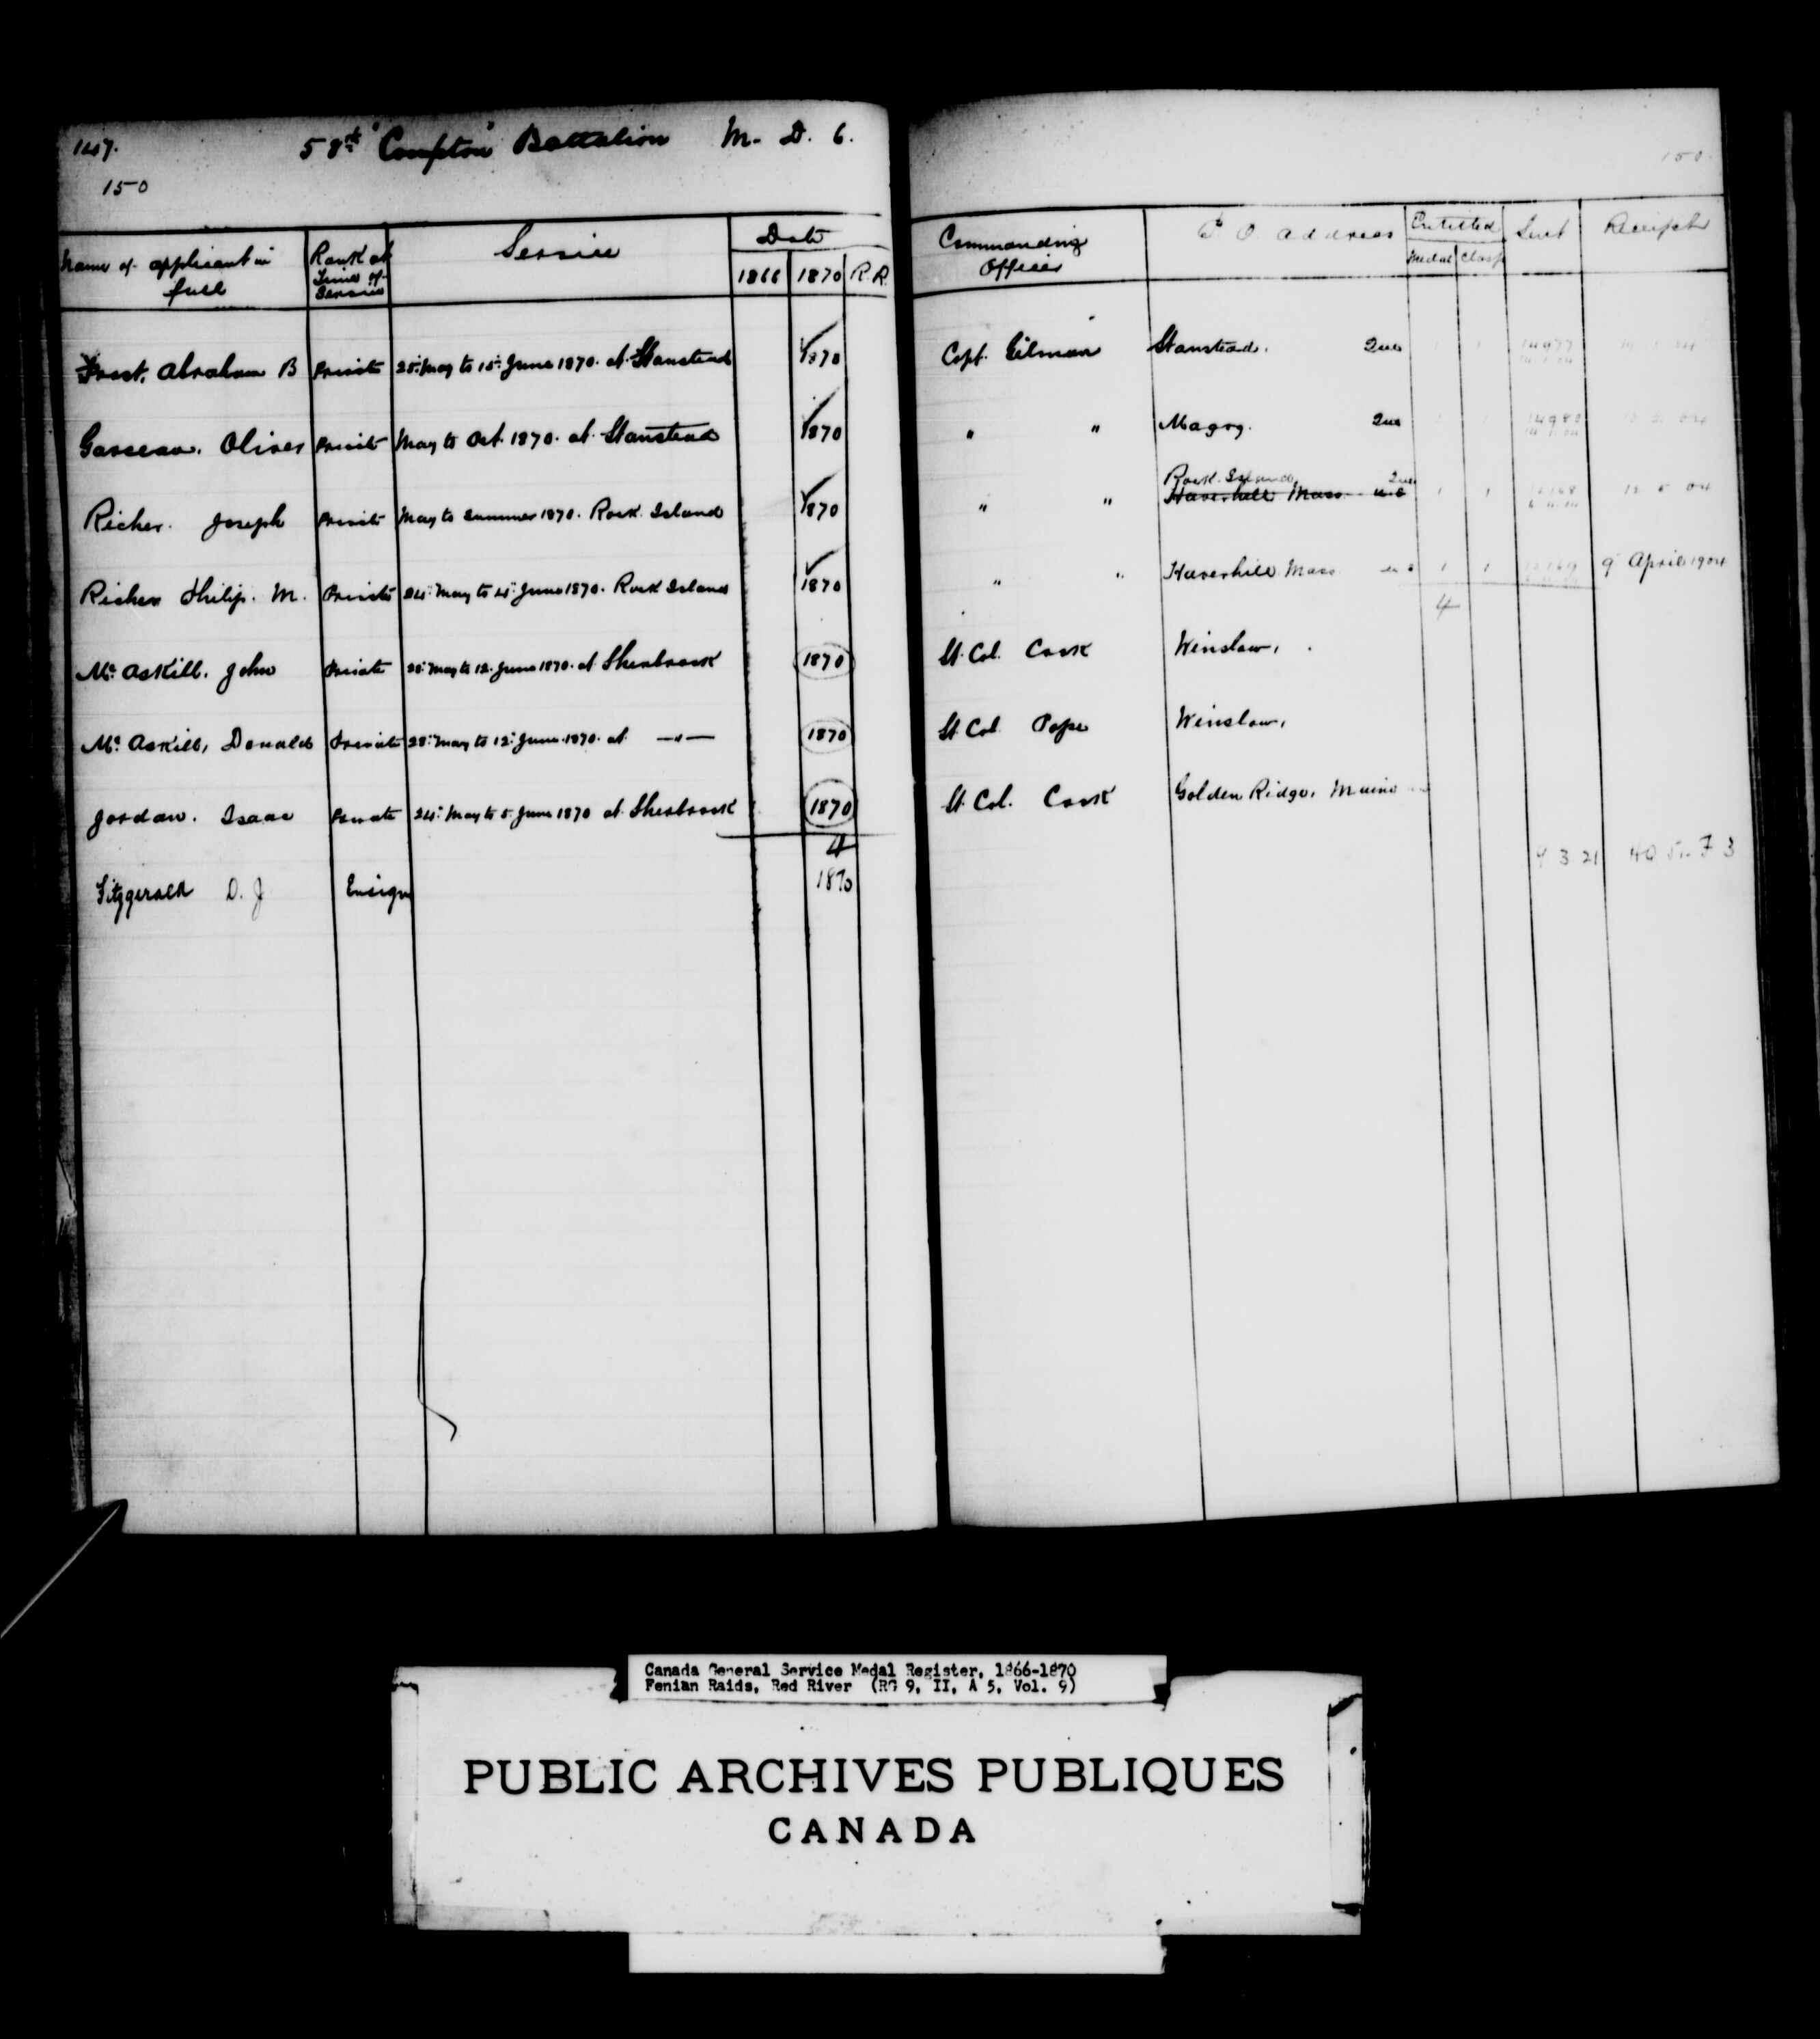 147. 58th "Compton" Battalion M. D. 6.
150 150
Name of applicant in full Rank at Time of Service Service Date Commanding Officer P. O. address Entitled Sent Receipt
1866 1870 R.R. Medal Clasp
Frost, Abraham B Private 25th May to 15th June 1870. at Stanstead 1870 Capt. Gilman Stanstead. Que
Garceau. Oliver Private May to Oct. 1870. at Stanstead 1870 " " Magog. Que
Rock Island, Que
Richer. Joseph Private May to Summer 1870. Rock Island 1870 " " Haverhill Mass U.S 1 1 12 5 04
Richer Philip. M. Private 24th May to 4th June 1870. Rock Island 1870 " " Haverhill Mass 1 1 9 April 1904
4
Mc Askill. John Private 28th May to 12. June 1870. at Sherbrook 1870 Lt. Col. Cook Winslow,
Mc Askill, Donald Private 28th May to 12th June 1870. at —"— 1870 Lt. Col Pope Winslow,
Jordan. Isaac Private 24th May to 5 June 1870 at Sherbrook 1870 Lt. Col. Cook Golden Ridge, Maine
4
Fitzgerald D. J Ensign 1870 4 3 21 HQ
Canada General Service Medal Register, 1866-1870
Fenian Raids, Red River (RG 9, II, A 5, Vol. 9)
PUBLIC ARCHIVES PUBLIQUES
CANADA